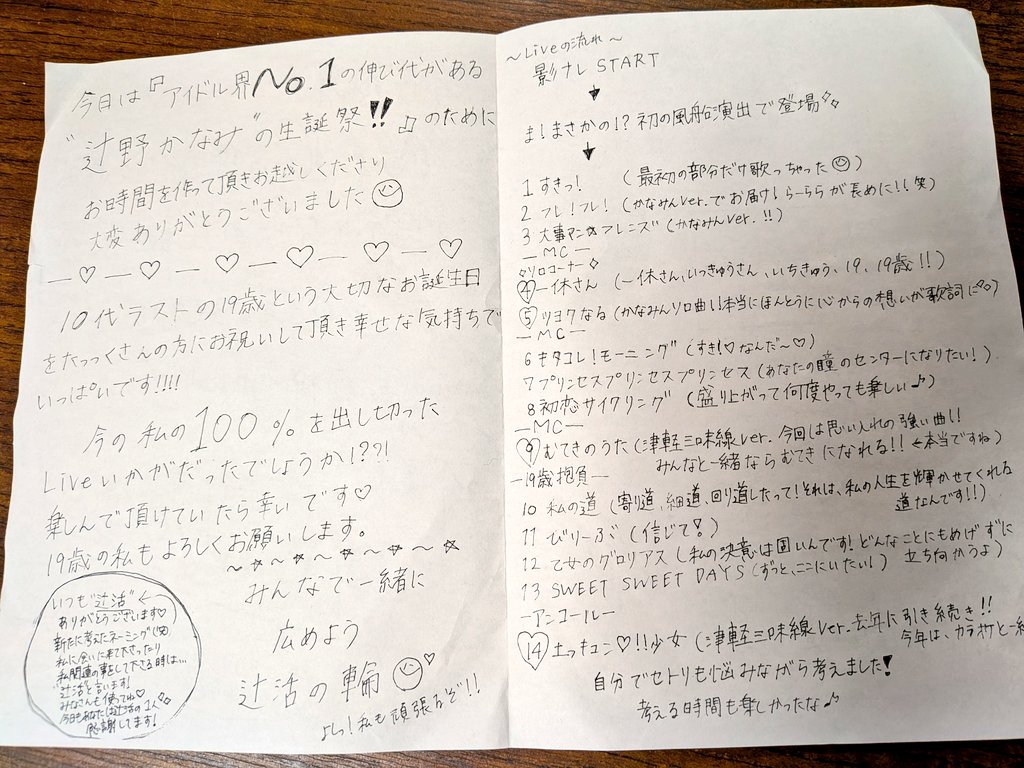 今日は『アイドル界No.1の伸び代がある
"辻野かなみ"の生誕祭!!』のために
お時間を作って頂きお越しくださり
大変ありがとうございました
10代ラストの19歳という大切なお誕生日
をたっっくさんの方にお祝いして頂き幸せな気持ちで
いっぱいです!!!!
今の私の100%を出し切った
Liveいかがだったでしょうか!??!
楽しんで頂けていたら幸いです♡
19歳の私もよろしくお願いします。
~☆~☆~☆~☆
みんなで一緒に
広めよう
辻活の輪
よしっ!私も頑張るぞ!!
いつも"辻活"←
ありがとうございます♡
新たに考えたネーミング(笑)
私に会いに来て下さったり
私関連の事をして下さる時は…
"辻活"と言います!
みなさんも使ってね♡
今日もあなたは辻活の1人
感謝してます!
~Liveの流れ~
影ナレ START
↓
ま!まさかの!?初の風船演出で登場
↓
1 すきっ! (最初の部分だけ歌っちゃった)
2 フレ!フレ! (かなみんver.でお届け!らーららが長めに!!笑)
3 大事マン☆フレンズ (かなみんver.!!)
—MC—
◇ソロコーナー◇
④一休さん (一休さん、いっきゅうさん、いちきゅう、19、19歳!!)
⑤ツヨクなる (かなみんソロ曲!!本当にほんとうに心からの想いが歌詞に
—MC—
6 キタコレ!モーニング (すき!♡なんだ~♡)
7 プリンセスプリンセスプリンセス (あなたの瞳のセンターになりたい!)
8 初恋サイクリング (盛り上がって何度やっても楽しい♪)
—MC—
⑨むてきのうた (津軽三味線ver. 今回は思い入れの強い曲!!
みんなと一緒ならむてきになれる!!←本当ですね)
—19歳抱負—
10 私の道 (寄り道、細道、回り道したって!それは、私の人生を輝かせてくれる
道なんです!!)
11 びりーぶ (信じて!)
12 乙女のグロリアス (私の決意は固いんです!どんなことにもめげずに
立ち向かうよ)
13 SWEET SWEET DAYS (ずっと、ここにいたい!)
—アンコール—
⑭土っキュン♡!!少女 (津軽三味線ver.去年に引き続き!!
今年は、カラサケと一緒
自分でセトリも悩みながら考えました!
考える時間も楽しかったな♪